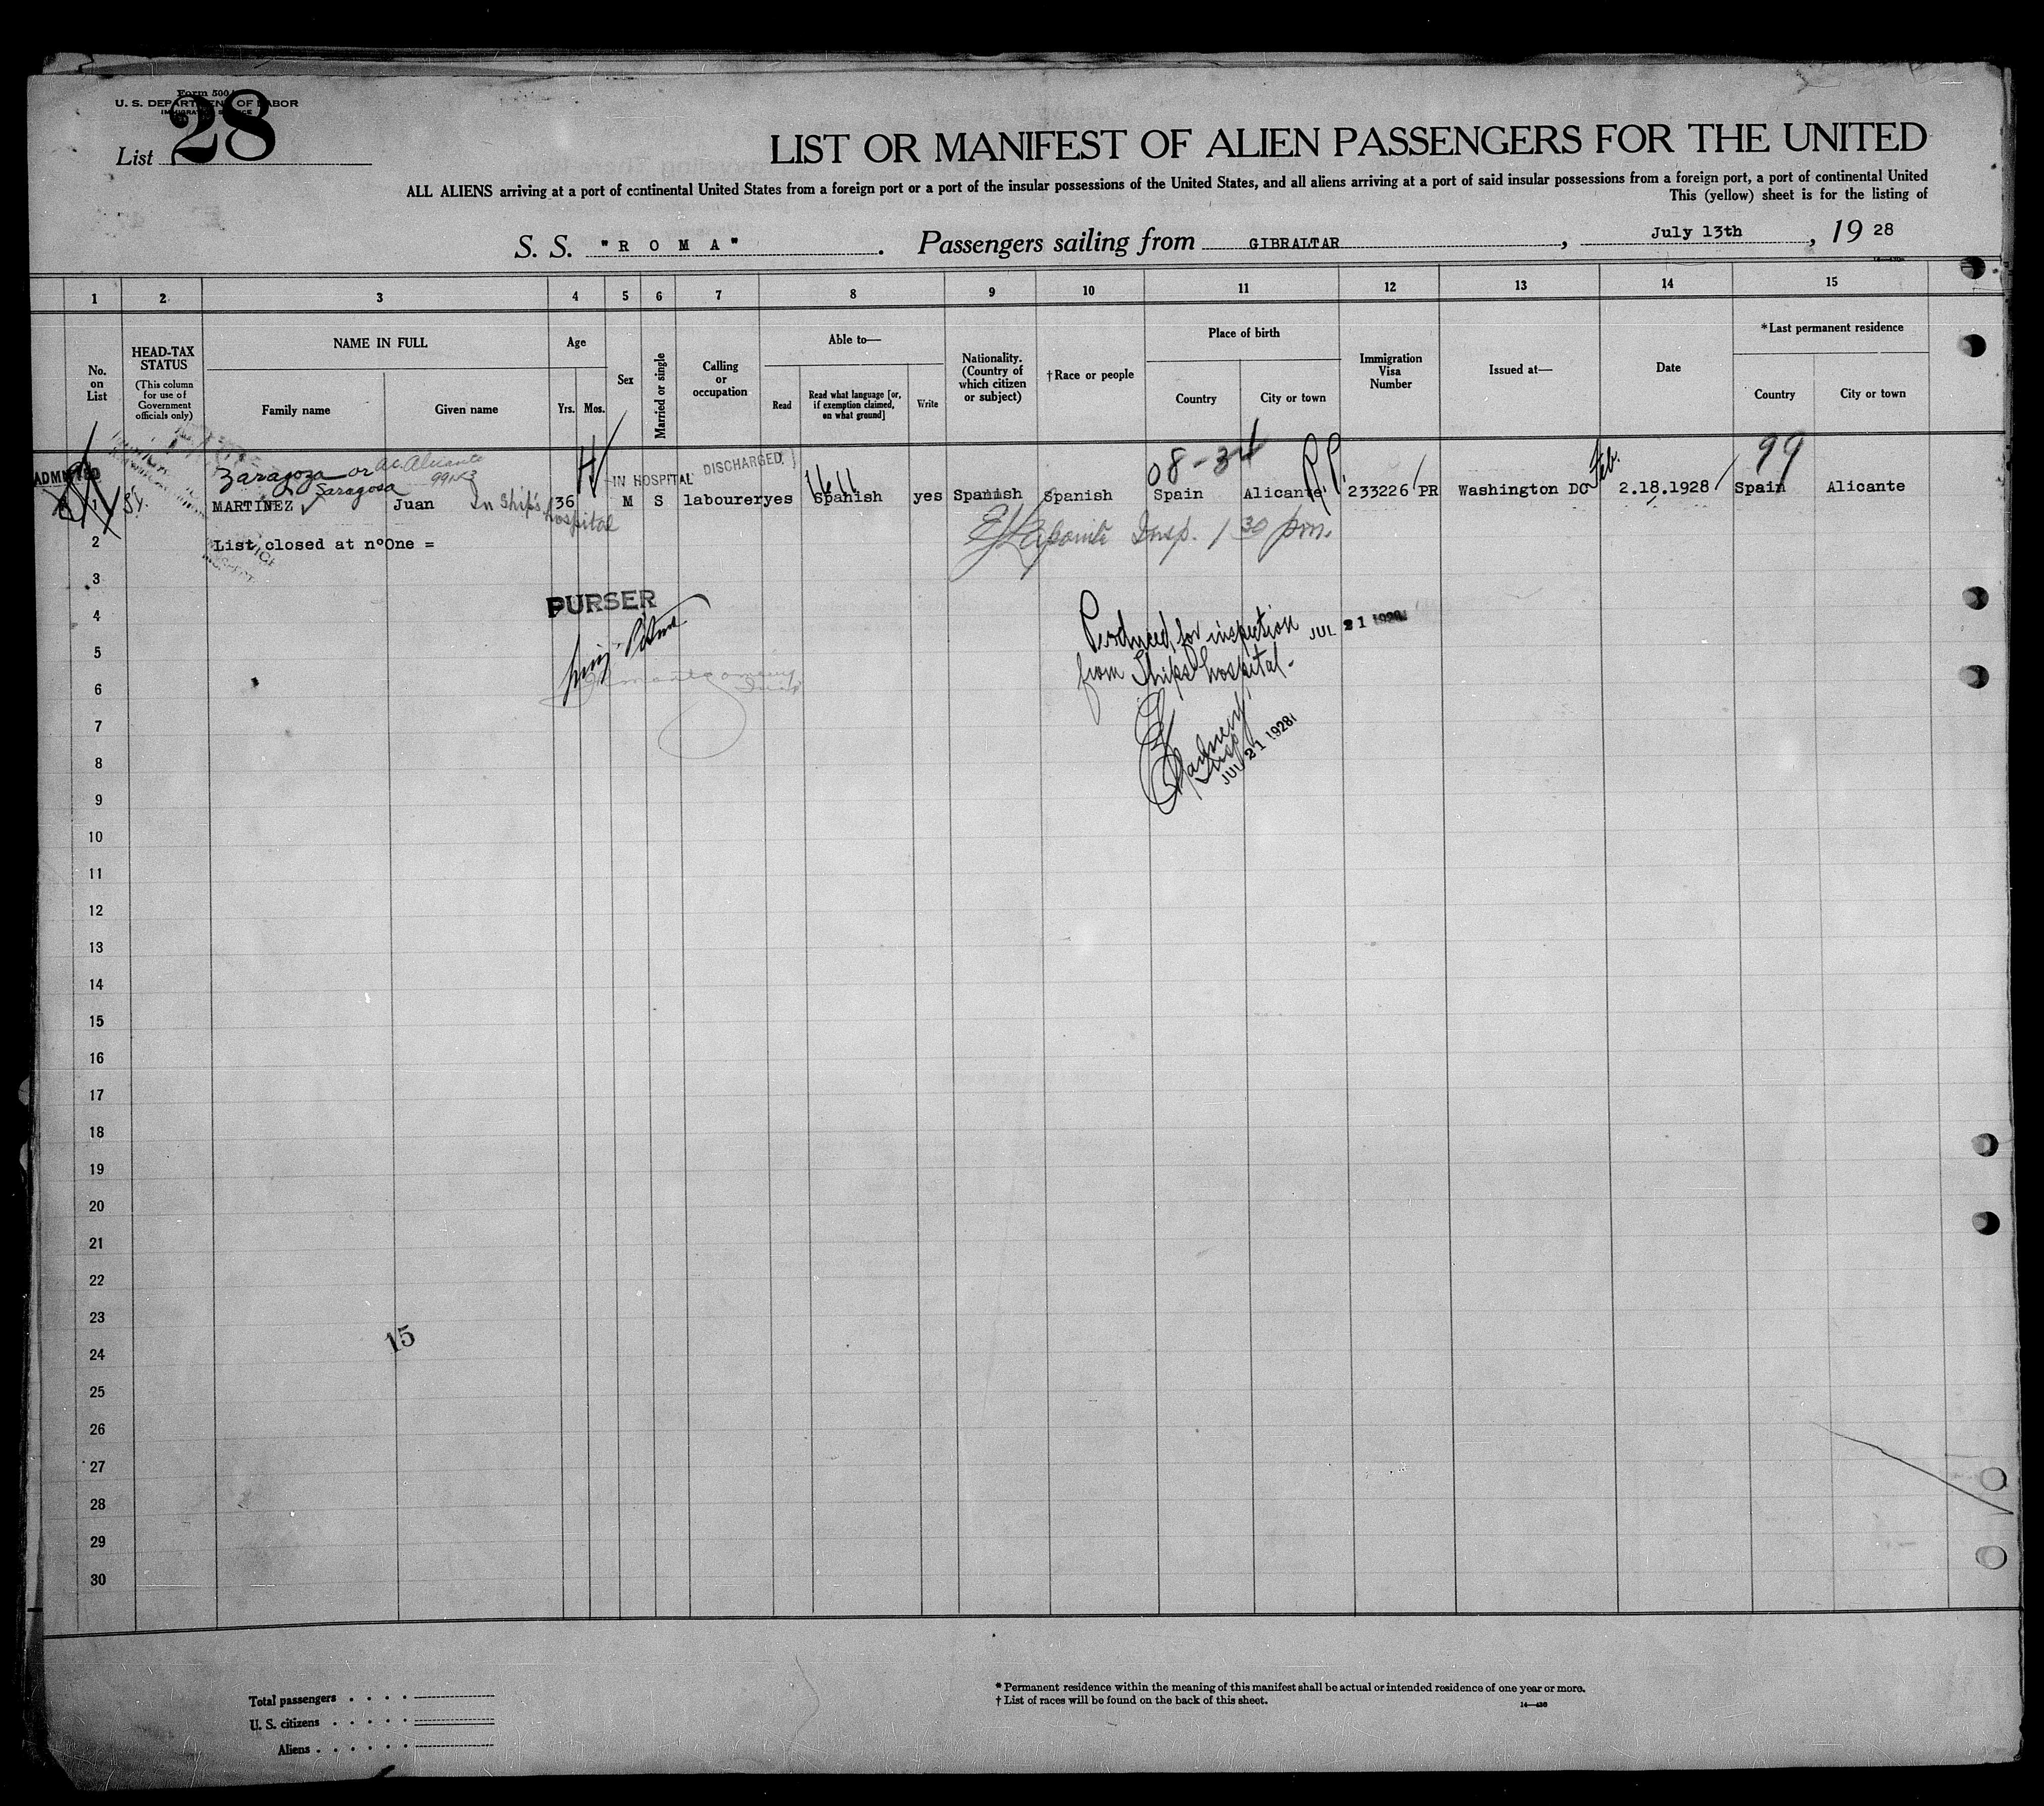 Form 500
U. S. DEPARTMENT OF LABOR
List 28
LIST OR MANIFEST OF ALIEN PASSENGERS FOR THE UNITED
ALL ALIENS arriving at a port of continental United States from a foreign port or a port of the insular possessions of the United States, and all aliens arriving at a port of said insular possessions from a foreign port, a port of continental United
This (yellow) sheet is for the listing of
S. S. "ROMA". Passengers sailing from GIBRALTAR, July 13th, 19 28
1 2 3 4 5 6 7 8 9 10 11 12 13 14 15
No. on List
HEAD-TAX STATUS
(This column for use of Government officials only)
NAME IN FULL
Family name
Given name
Age
Yrs. Mos.
Sex
Married or single
Calling or occupation
Able to—
Read
Read what language [or, if exemption claimed, on what ground]
Write
Nationality. (Country of which citizen or subject)
†Race or people
Place of birth
Country
City or town
Immigration Visa Number
Issued at—
Date
*Last permanent residence
Country
City or town
ADMITTED
Zaragoza or
Saragosa
IN HOSPITAL DISCHARGED
08-34
P.P.
Feb.
99
1 MARTINEZ Juan In Ship's hospital 36 M S labourer yes Spanish yes Spanish Spanish Spain Alicante 233226 PR Washington DC 2.18.1928 Spain Alicante
Insp. 1 30 pm.
2 List closed at n°One =
3
4
PURSER
Produced for inspection JUL 21 1928
from Ships hospital.
5
6
7
JUL 21 1928
8
9
10
11
12
13
14
15
16
17
18
19
20
21
22
23
15
24
25
26
27
28
29
30
Total passengers
U. S. citizens
Aliens
* Permanent residence within the meaning of this manifest shall be actual or intended residence of one year or more.
† List of races will be found on the back of this sheet.